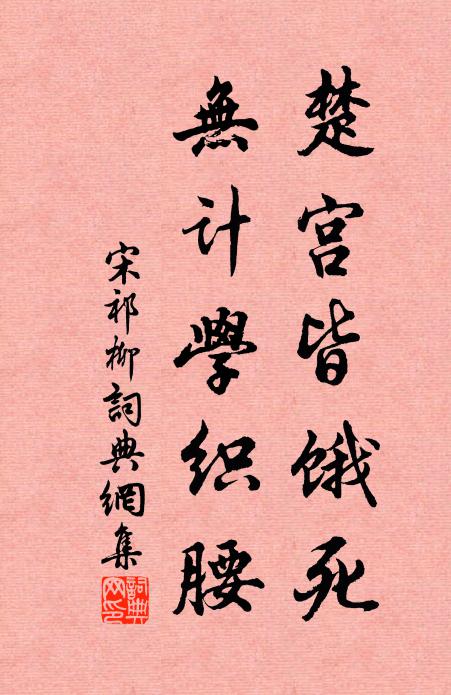 楚宫皆饿死
無计學织腰
宋祁柳詞典網集
詞典
网印